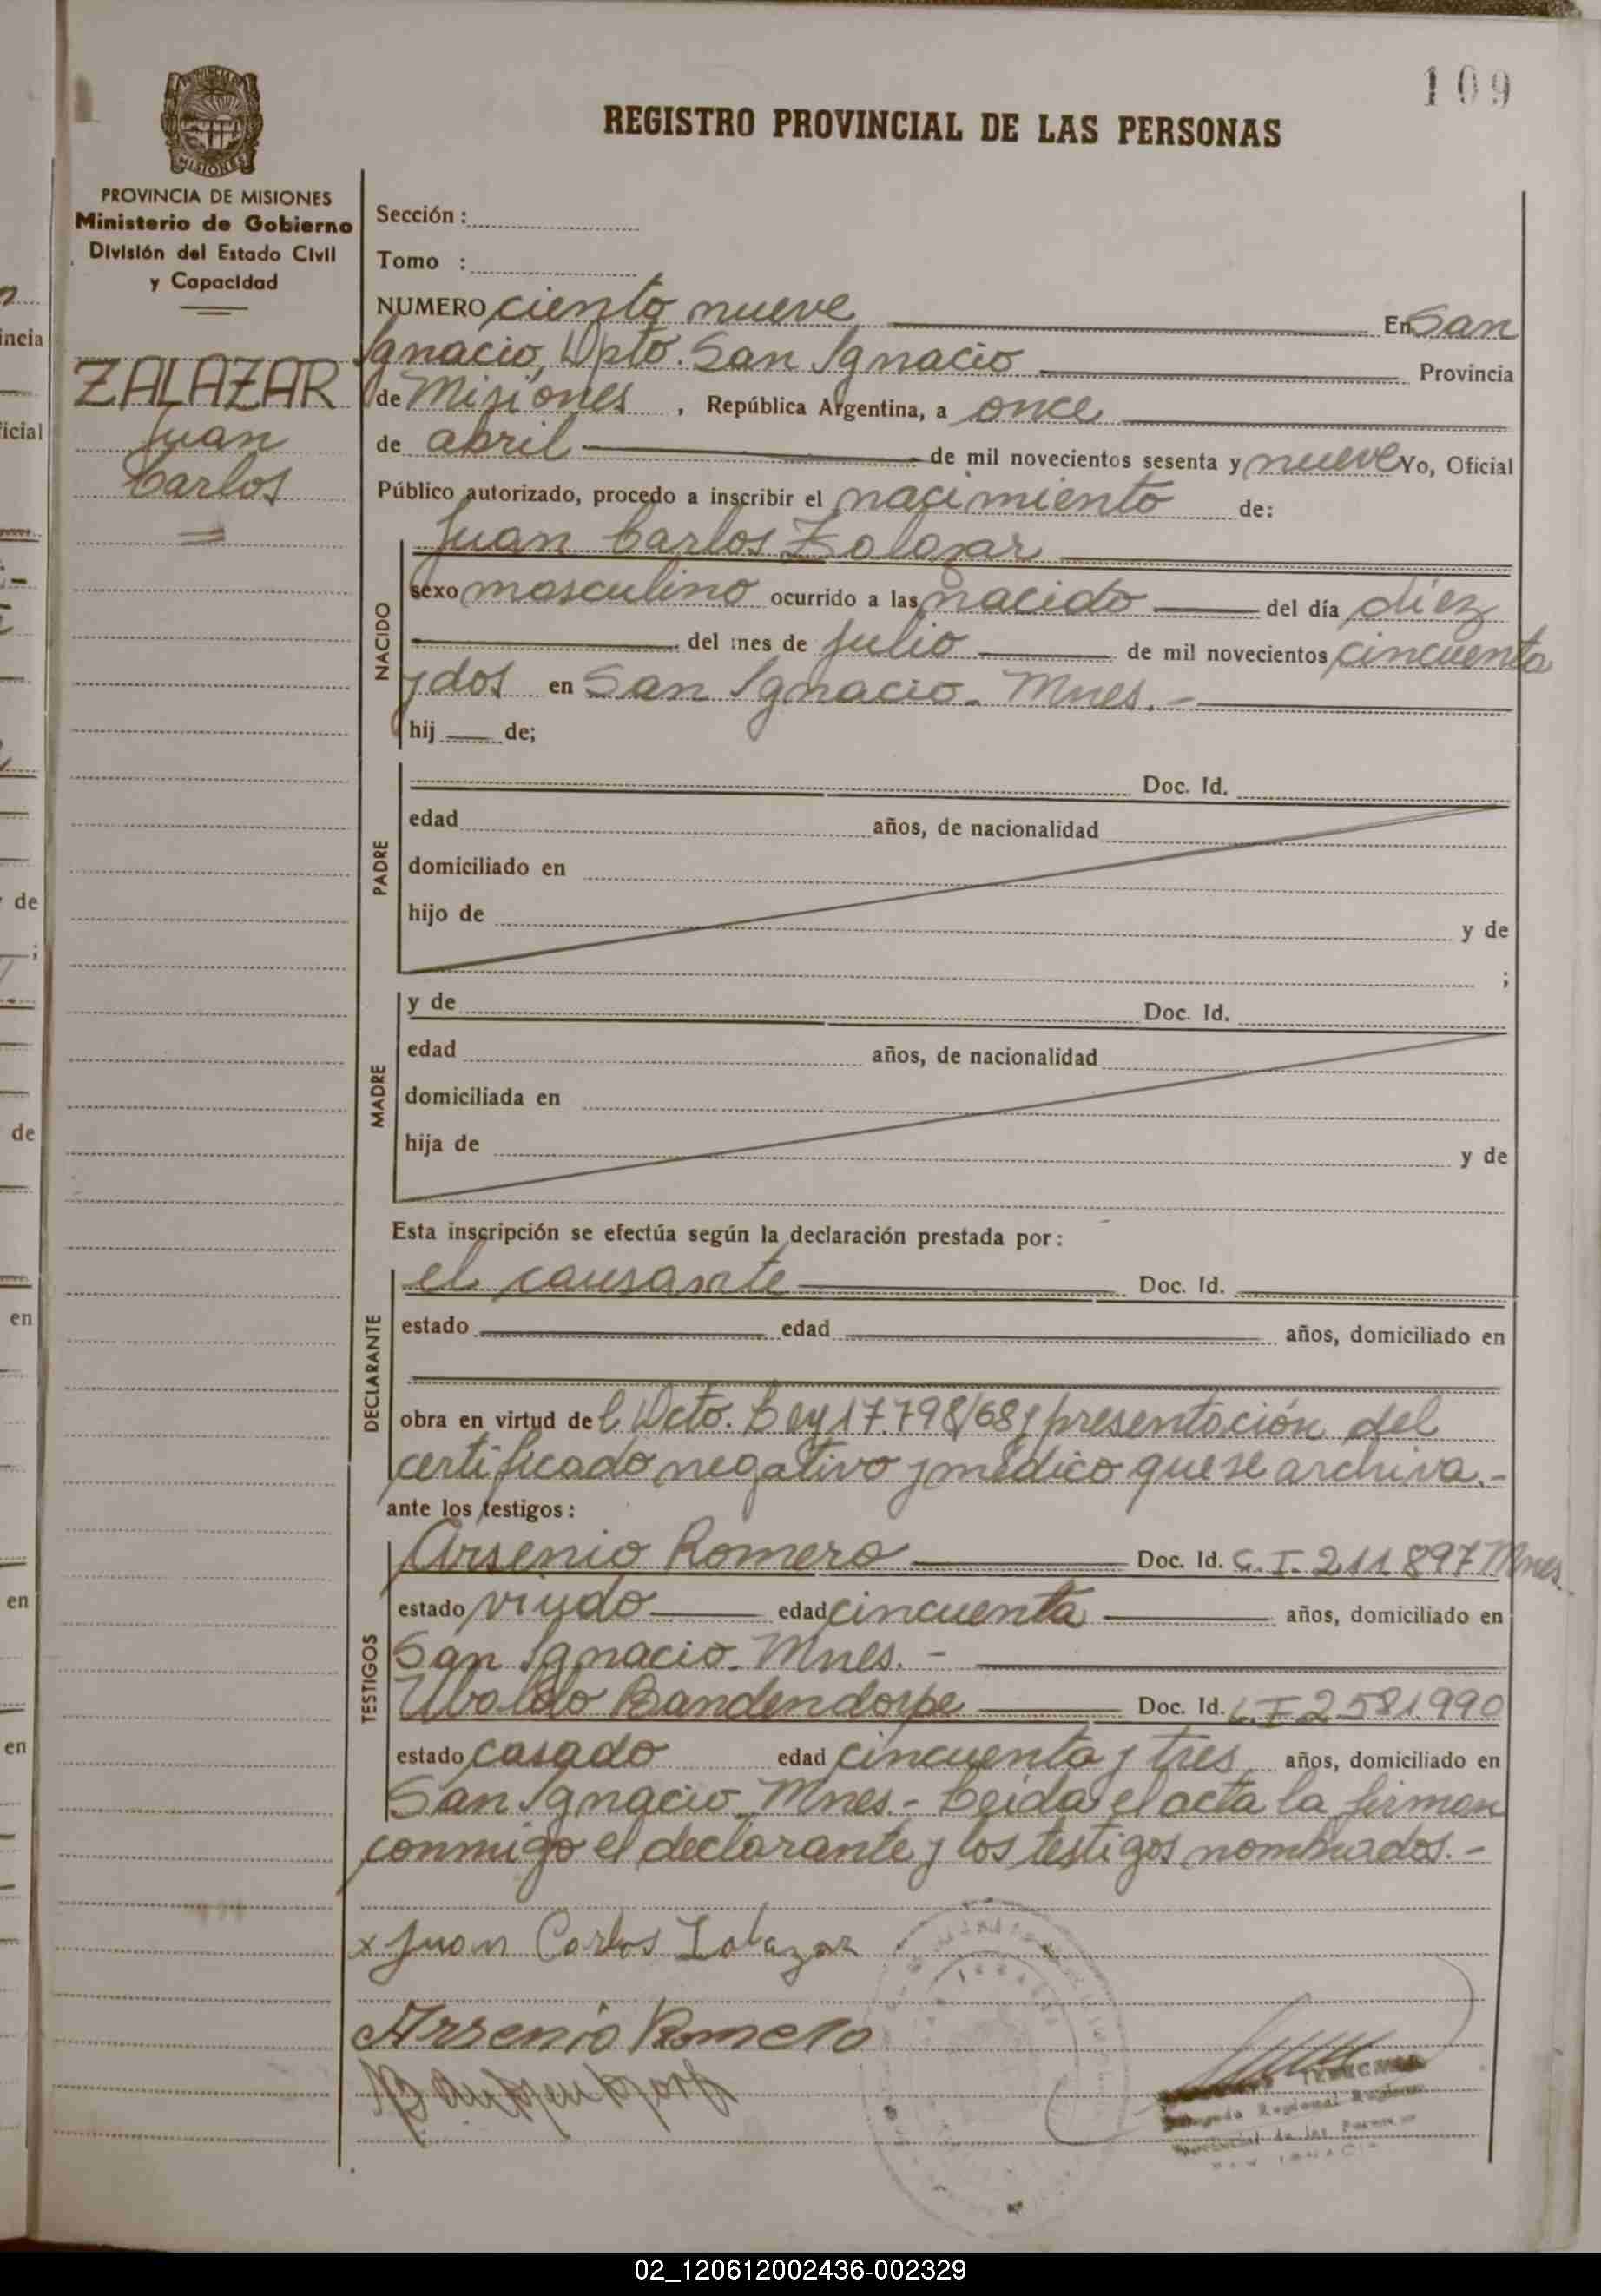 109
REGISTRO PROVINCIAL DE LAS PERSONAS
PROVINCIA DE MISIONES
Ministerio de Gobierno
División del Estado Civil
y Capacidad
ZALAZAR
Juan
Carlos
Sección :
Tomo :
NUMERO ciento nueve En San
Ignacio, Dpto. San Ignacio Provincia
de Misiones , República Argentina, a once
de abril de mil novecientos sesenta y nueve Yo, Oficial
Público autorizado, procedo a inscribir el nacimiento de:
Juan Carlos Zalazar
NACIDO
sexo masculino ocurrido a las nacido del día diez
del mes de julio de mil novecientos cincuenta
y dos en San Ignacio - Mnes. -
hij de;
PADRE
Doc. Id.
edad años, de nacionalidad
domiciliado en
hijo de y de
;
MADRE
y de Doc. Id.
edad años, de nacionalidad
domiciliada en
hija de y de
Esta inscripción se efectúa según la declaración prestada por :
DECLARANTE
el causante Doc. Id.
estado edad años, domiciliado en
obra en virtud de l Dcto. Ley 17.798/68 y presentación del
certificado negativo y médico que se archiva. -
ante los testigos :
TESTIGOS
Arsenio Romero Doc. Id. C. I. 211.897 Mnes.
estado viudo edad cincuenta años, domiciliado en
San Ignacio - Mnes. -
Ubaldo Bandendorpe Doc. Id. C. I. 2581.990
estado casado edad cincuenta y tres años, domiciliado en
San Ignacio - Mnes. - Leída el acta la firman
conmigo el declarante y los testigos nombrados. -
x Juan Carlos Zalazar
Arsenio Romero
02_120612002436-002329